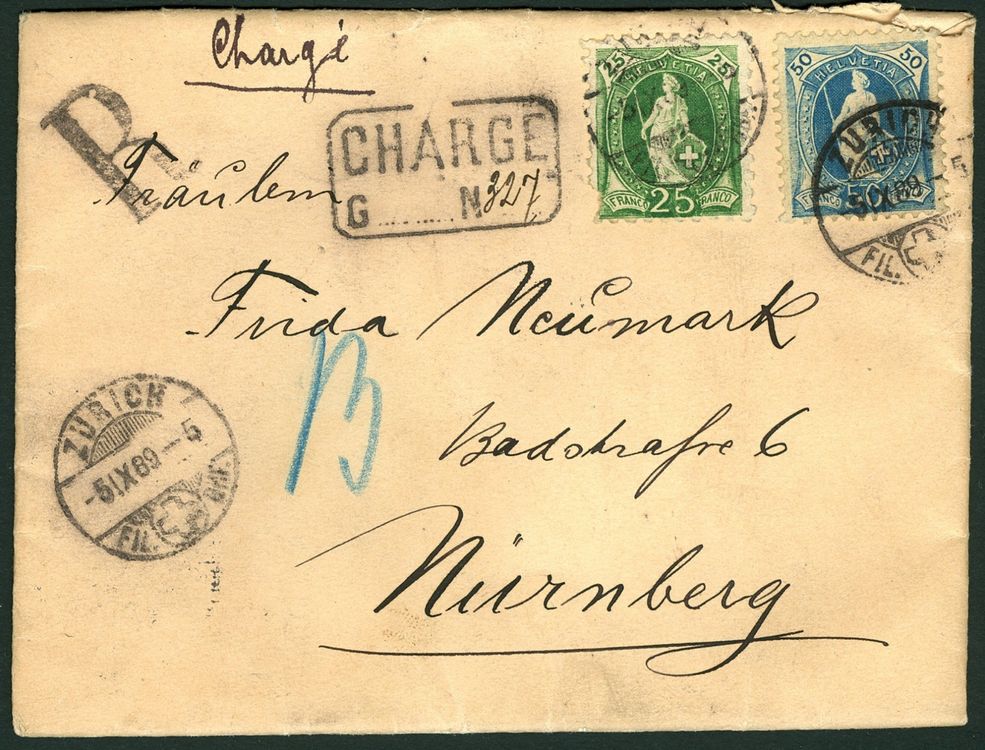 Chargé
R
CHARGÉ
G........N 327
25 25
HELVETIA
FRANCO 25 FRANCO
50 50
HELVETIA
FRANCO
ZÜRICH
-5IX89-5
FIL.
Fräulein
Frida Neumark
B
Badstraße 6
Nürnberg
ZÜRICH
-5IX89-5
FIL. BHF.